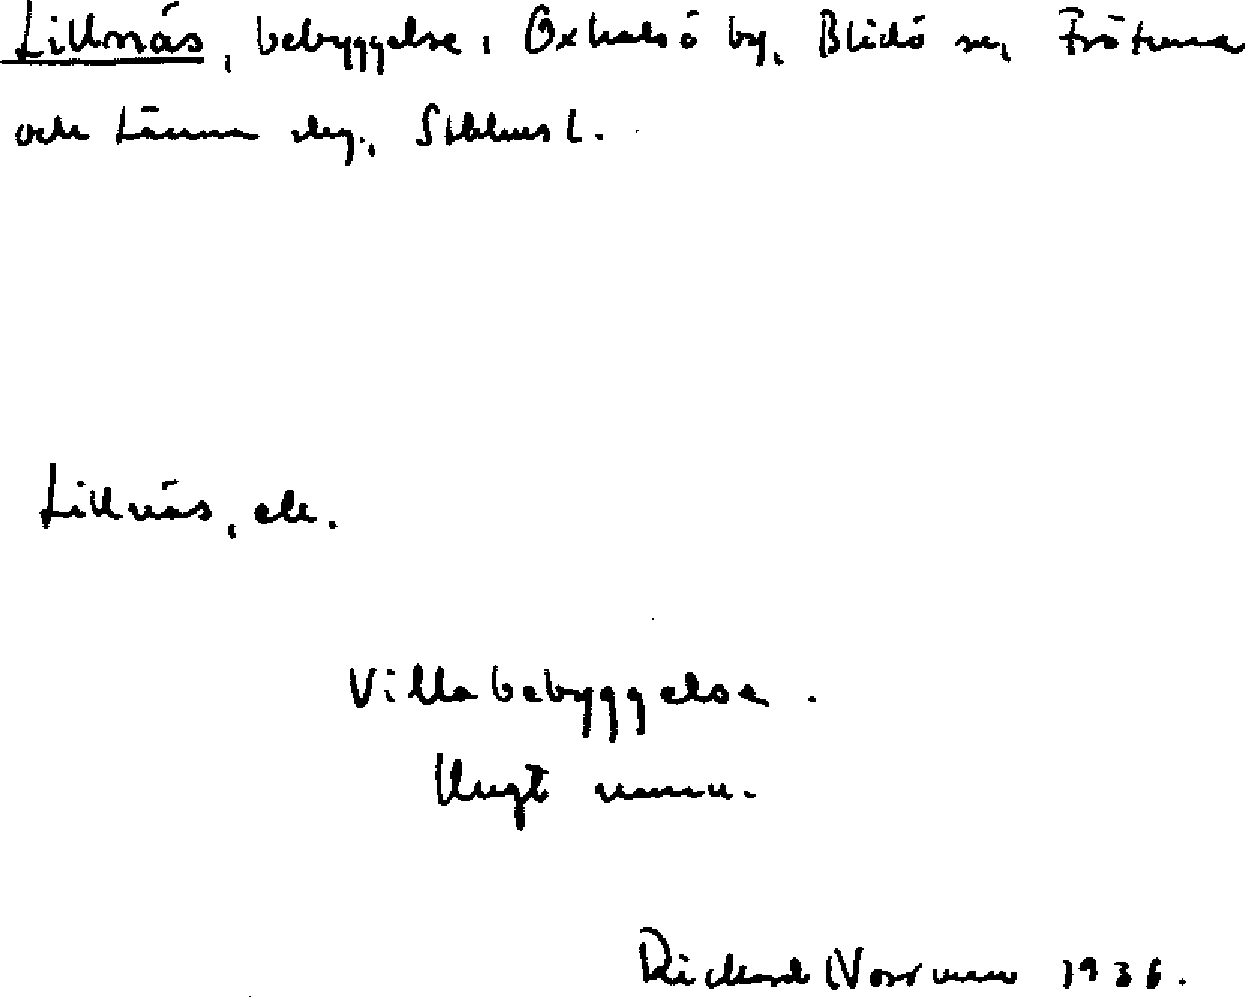 Lillnäs, bebyggelse i Oxhalsö by, Blidö sn, Frötuna
och Länna slg., Sthlms l.
Lillnäs,
Villabebyggelse.
Ungt namn.
Rickard Norrman 1936.